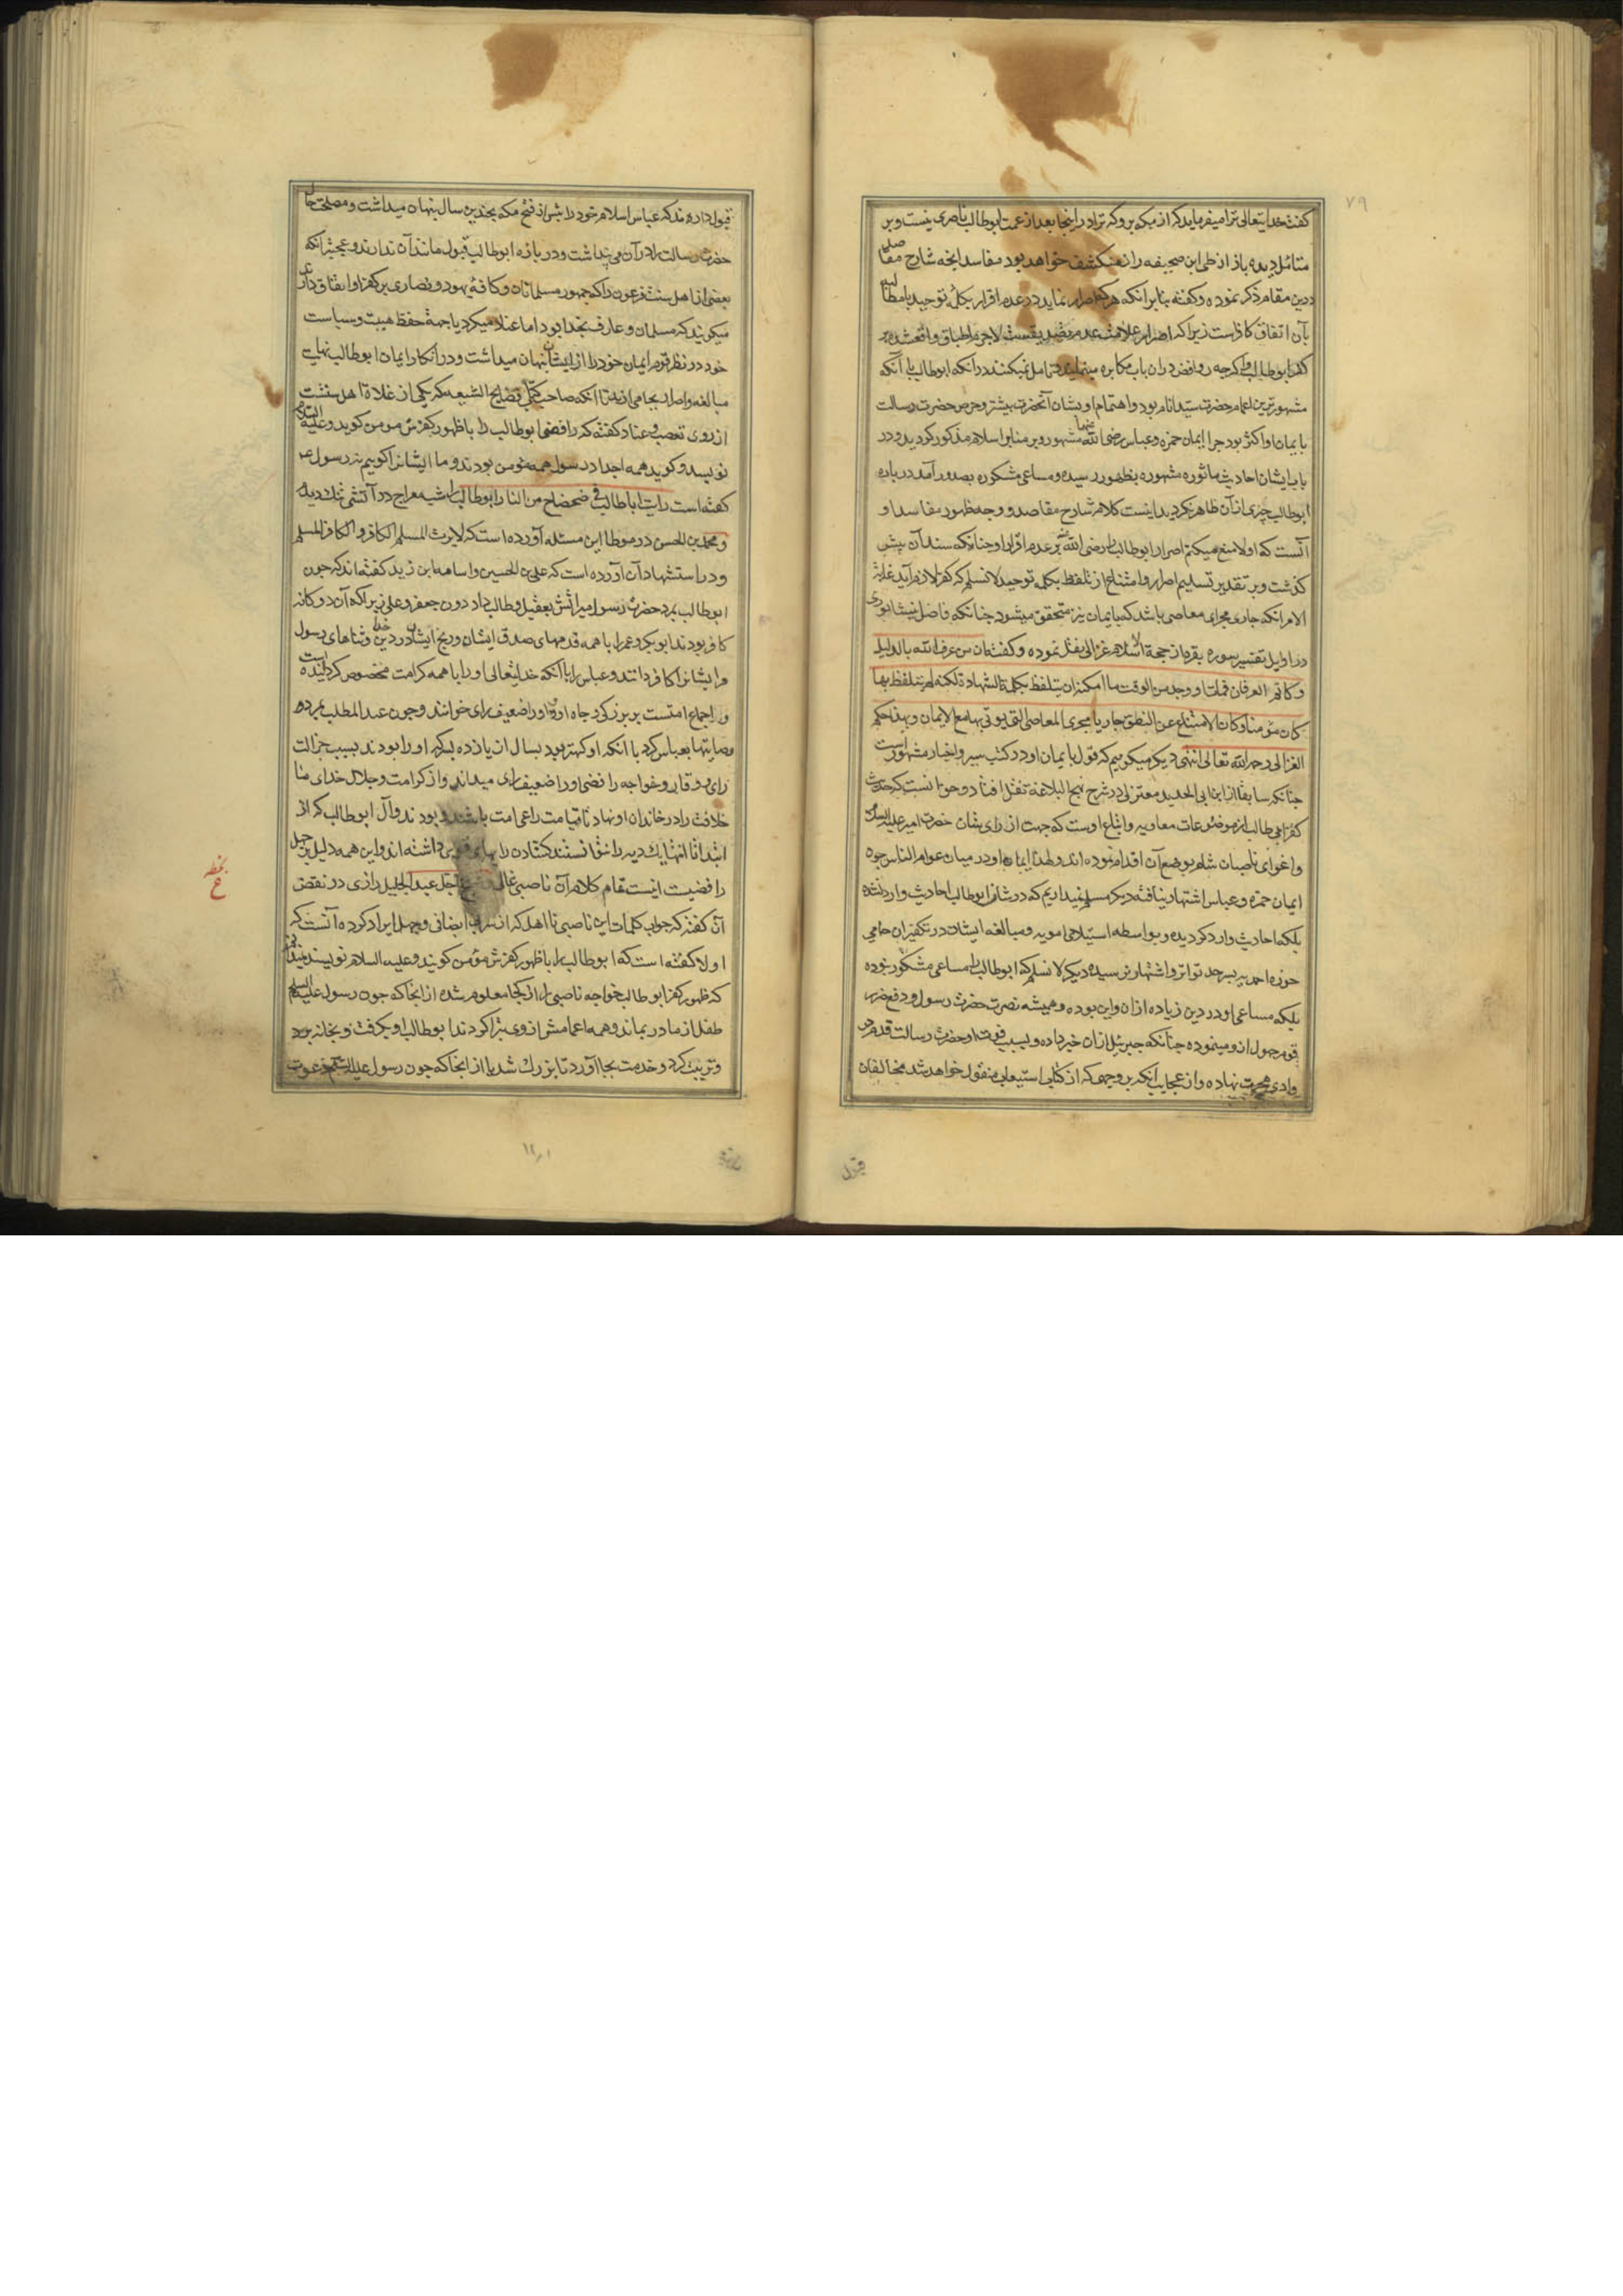 ۷۹
گفت خدایتعالی ترا میفرماید که از مکه برو که ترا در اینجا بعد از عمت ابوطالب ناصری نیست و بر
متأمل دیده باز از طی این صحیفه راز منکشف خواهد بود مفاسد انچه شارح مقاصد
درین مقام ذکر نموده و گفته بنابر آنکه هر که اصرار نماید در عدم اقرار بکلمه توحید با مطالبه
بآن اتفاق کافرست زیرا که اصرار علامت عدم تصدیقست لاجرم اطباق واقع شده بر
کفر ابوطالب و اگرچه روافض دران باب مکابره مینمایند و تأمل نمیکنند در آنکه ابوطالب با آنکه
مشهورترین اعمام حضرت سید انام بود و اهتمام او بشان آنحضرت بیشتر و حرص حضرت رسالت
بایمان او اکثر بود چرا ایمان حمزه و عباس رضی الله عنهما مشهور و بر منابر اسلام مذکور گردید و در
باب ایشان احادیث ماثوره مشهوره بظهور رسیده و مساعی مشکوره بصدور آمد درباره
ابوطالب چیزی از آن ظاهر نگردید اینست کلام شارح مقاصد و وجه ظهور مفاسد او
آنست که اولا منع میکنم اصرار ابوطالب را رضی الله عنه بر عدم اقرار او چنانکه سند آن پیش
گذشت و بر تقدیر تسلیم اصرار و امتناع از تلفظ بکلمه توحید لا نسلم که کفر لازم آید غایة
الامر آنکه جاری مجرای معاصی باشد که با ایمان نیز متحقق میشود چنانکه فاضل نیشابوری
در اوایل تفسیر سوره بقره از حجة الاسلام غزالی نقل نموده و گفته ان من عرف الله بالدلیل
و کما تم العرفان فمات او وجد من الوقت ما امکنه ان یتلفظ بکلمة الشهادة لکنه لم یتلفظ بها
کان مؤمنا و کان الامتناع عن النطق جاریا مجری المعاصی التی یؤتی بها مع الایمان و بهذا حکم
الغزالی رحمه الله تعالی انتهی دیگر میگوییم که قول بایمان او در کتب سیر و اخبار مشهور است
چنانکه سابقا از ابن ابی الحدید معتزلی در شرح نهج البلاغه نقل افتاد و حق آنست که حدیث
کفر ابی طالب از موضوعات معاویه و اتباع اوست که جهت از رای شان حضرت امیر علیه السلام
و اغوای ناصبان شام بوضع آن اقدام نموده اند و لهذا ایمان او در میان عوام الناس چون
ایمان حمزه و عباس اشتهار نیافته دیگر مسلم نمیداریم که در شان ابوطالب احادیث وارد نشده
بلکه احادیث وارد گردیده و بواسطه استیلای امویه و مبالغه ایشان در تکفیر ان حامی
حوزه احمدیه بسر حد تواتر و اشتهار نرسیده دیگر لا نسلم که ابوطالب را مساعی مشکور نبوده
بلکه مساعی او در دین زیاده از ان و این بوده و همیشه نصرت حضرت رسول و دفع ضرر
قوم جهول از و مینموده چنانکه جبرئیل از ان خبر داده و بسبب فوت او حضرت رسالت قدم در
وادی هجرت نهاده و از عجایب آنکه بر وجهی که از کتاب استیعاب منقول خواهد شد مخالفان
قبول
قبول دارند که عباس اسلام خود را پیش از فتح مکه بچندین سال پنهان میداشت و مصلحت حال
حضرت رسالت را در آن می پنداشت و درباره ابوطالب قبول مانند آن ندارند و عجیبتر آنکه
بعضی از اهل سنت فرعون را که جمهور مسلمانان و کافه یهود و نصاری بر کفر او اتفاق دارند
میگویند که مسلمان و عارف بخدا بود اما عنلام میکرد یا جهة حفظ هیبت و سیاست
خود در نظر قوم ایمان خود را از ایشان پنهان میداشت و در انکار ایمان ابوطالب نهایت
مبالغه و اصرار بجا می ارند تا آنکه صاحب کتاب فضایح الشیعه که یکی از غلاة اهل سنت
از روی تعصب و عناد گفته که رافضی ابوطالب را با ظهور کفرش مومن گوید و علیه السلام
نویسد و گوید همه اجداد رسول همه مؤمن بودند و ما ایشانرا گوییم نه رسول ص
گفته است رایت اباطالب فی ضحضاح من النار ابوطالب را شب معراج در آتشی تنک دیدم
و محمد بن الحسن در موطا این مسئله آورده است که لایرث المسلم الکافر و الکافر المسلم
و در استشهاد آن آورده است که علی بن الحسین و اسامه ابن زید گفته اند که چون
ابوطالب بمرد حضرت رسول میراثش بعقیل و طالب داد دون جعفر و علی زیرا که آن دوگانه
کافر بودند ابوبکر و عمر را با همه قدمهای صدق ایشان و رنج ایشان در دین خدا و ثناهای رسول
مر ایشانرا کافر دانند و عباس را با آنکه خدایتعالی او را با همه کرامت مخصوص گردانیده است
و اجماع امتست بر بزرگی و جاه او او را ضعیف رای خوانند و چون عبدالمطلب بمرد
وصایتها بعباس کرد با آنکه او کهتر بود بسال از یازده پسر که او را بودند بسبب جزالت
رای و وقار و خواجه رافضی او را ضعیف رای میداند و از کرامت و جلال خدای ما
خلافت را در خاندان او نهاد تا قیامت راعی امت باشند و بودند و آل ابوطالب که از
ابتدا تا انتها یک دیه را نتوانستند گشادن
رافضیت اینست تمام کلام آن ناصبی غالی و شیخ اجل عبدالجلیل رازی در نقض
آن گفته که جواب کلمات این ناصبی نااهل که از سر بی انصافی و جهل ایراد کرده آنست که
اولا گفته است که ابوطالب را با ظهور کفرش مؤمن گویند و علیه السلام نویسند
که ظهور کفر ابوطالب خواجه ناصبی را از کجا معلوم شده از آنجا که چون رسول علیه السلم
طفل از مادر بماند و همه اعمامش از وی تبرا کردند ابوطالب او برگرفت و بخانه برد
و تربیت کرد و خدمت بجا آورد تا بزرگ شد یا از آنجا که چون رسول علیه السلم دعوت